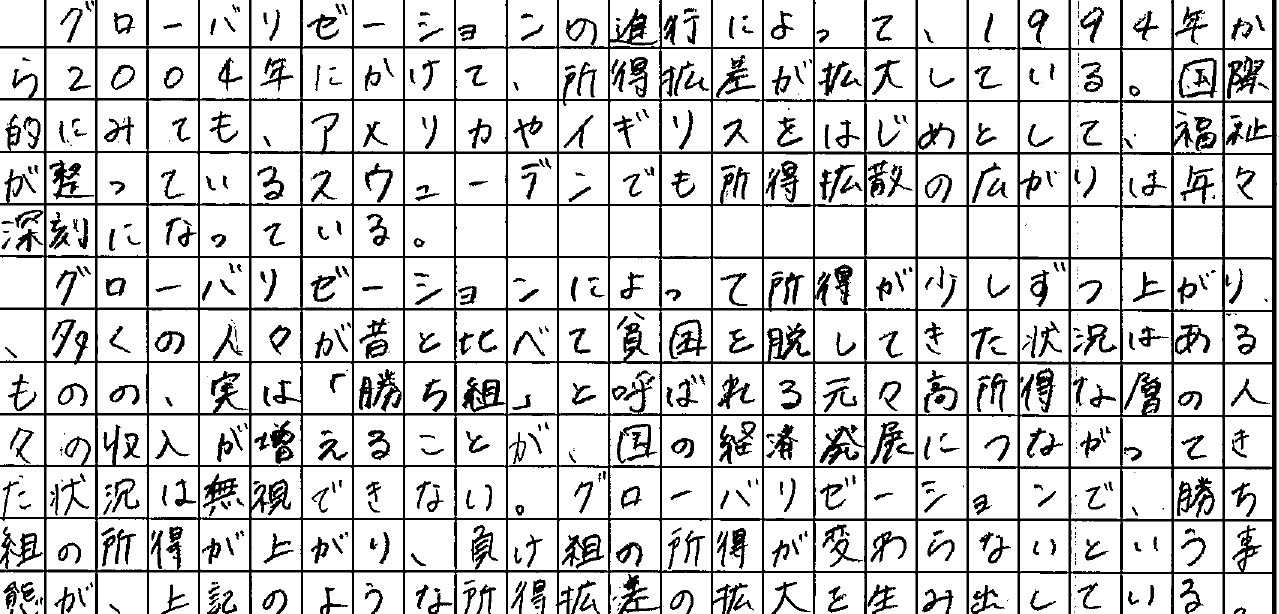 グローバリゼーションの進行によって、1994年か
ら2004年にかけて、所得拡差が拡大している。国際
的にみても、アメリカやイギリスをはじめとして、福祉
が整っているスウェーデンでも所得拡散の広がりは年々
深刻になっている。
グローバリゼーションによって所得が少しずつ上がり、
、多くの人々が昔と比べて貧国を脱してきた状況はある
ものの、実は「勝ち組」と呼ばれる元々高所得な層の人
々の収入が増えることが、国の経済発展につながってき
た状況は無視できない。グローバリゼーションで、勝ち
組の所得が上がり、負け組の所得が変わらないという事
態が、上記のような所得拡差の拡大を生み出している。